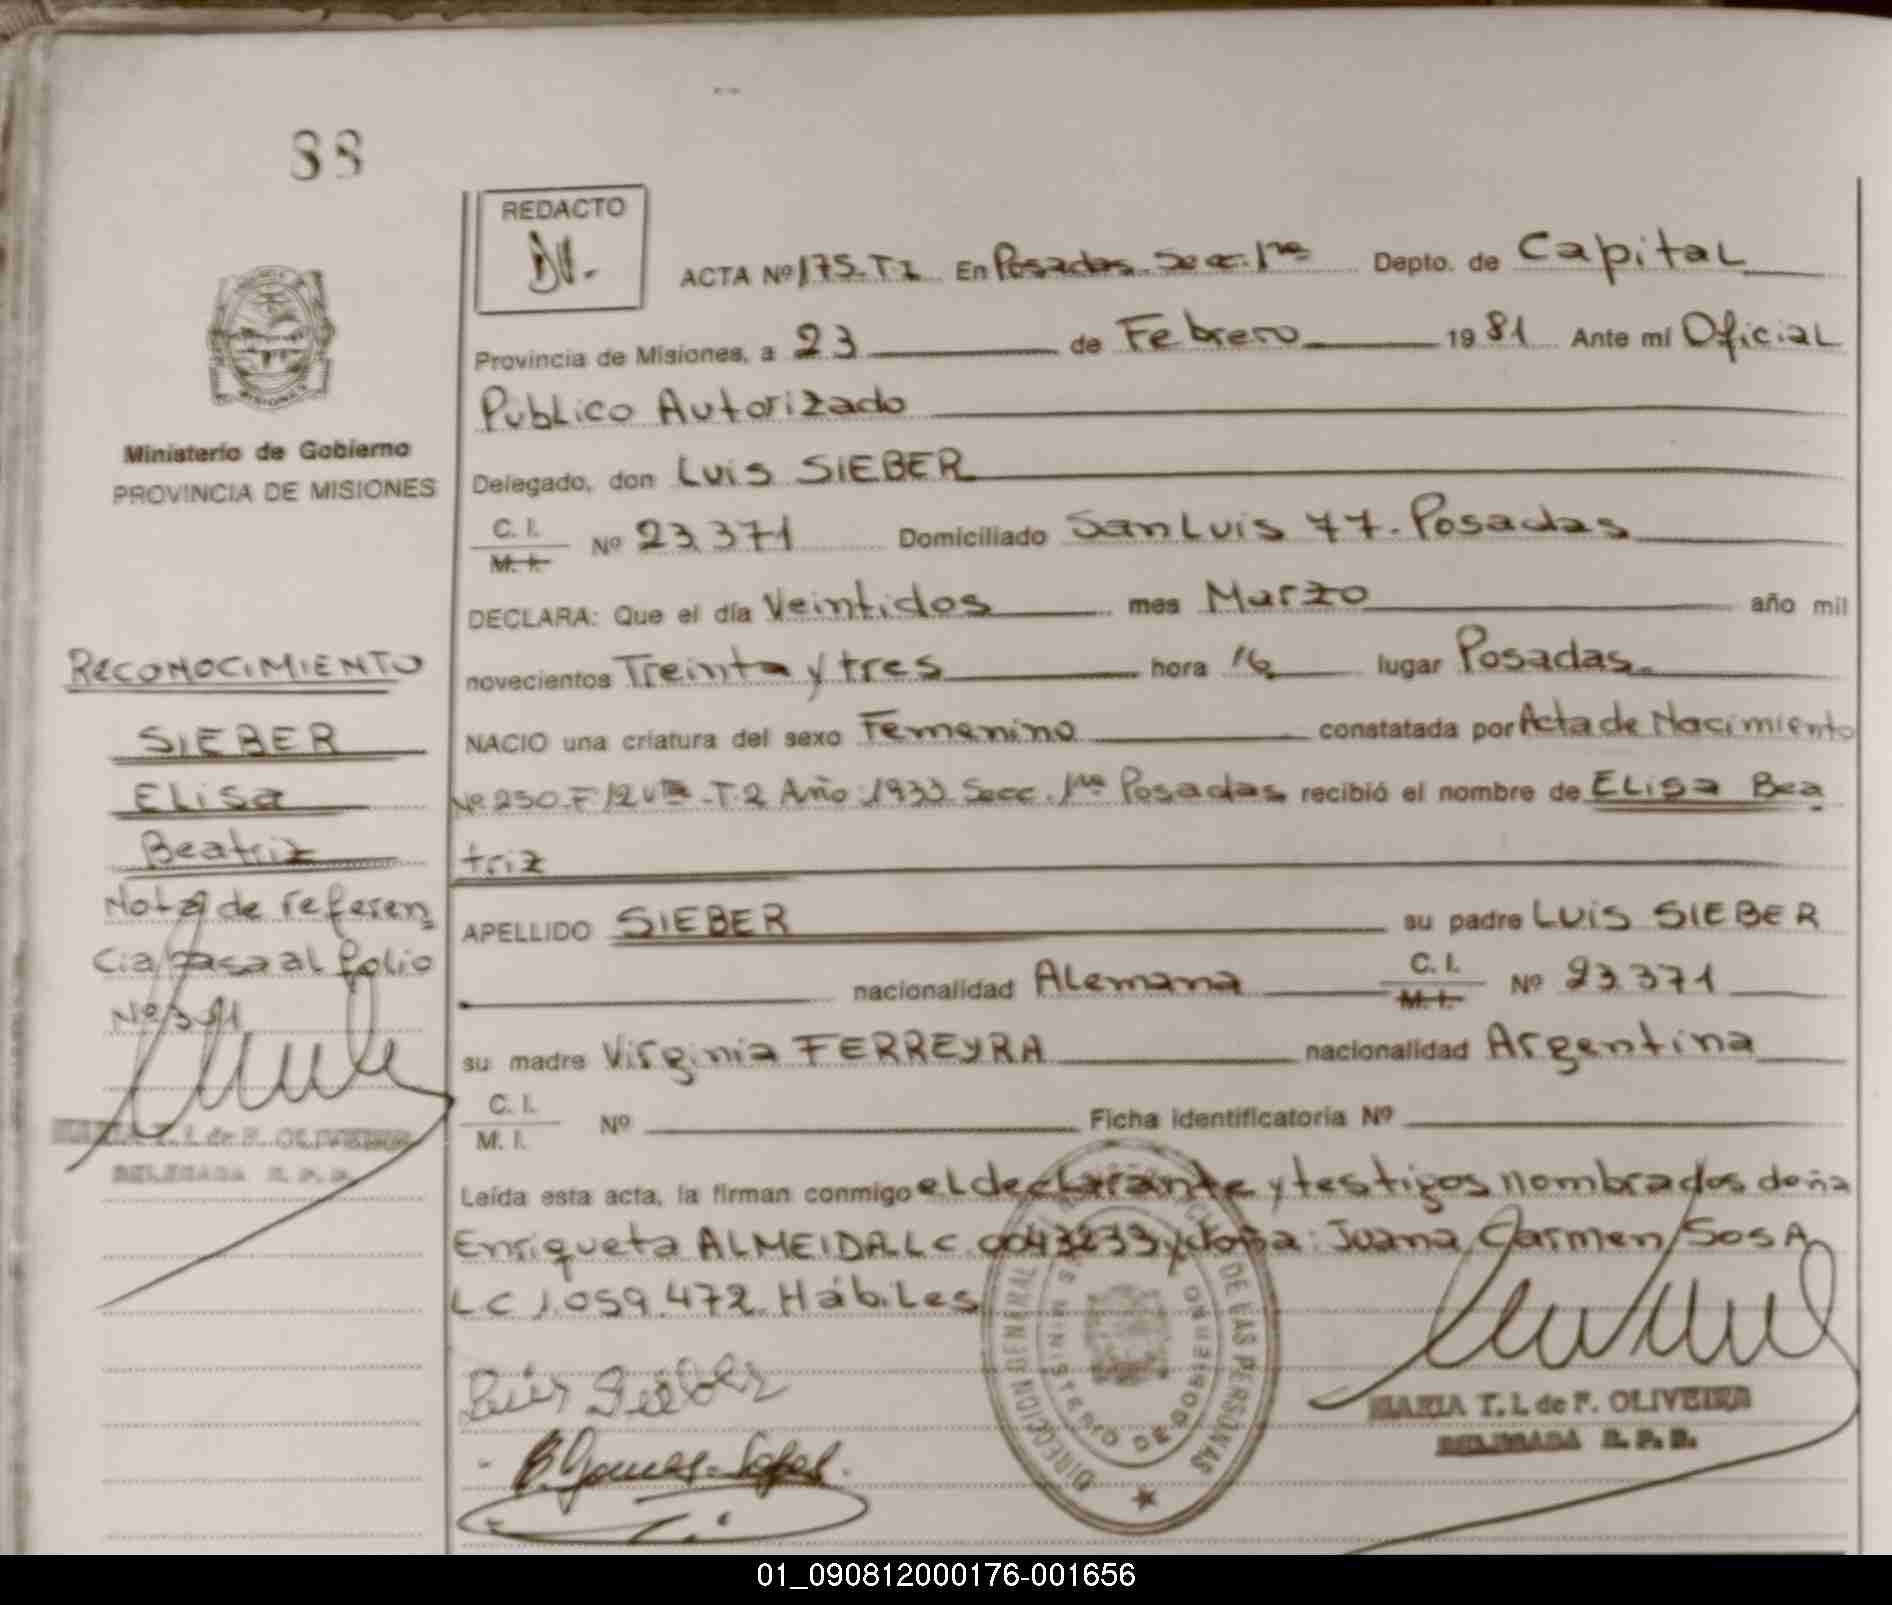 88
REDACTO
ACTA Nº 175. T. 2 En Posadas. Secc. 1ra Depto. de Capital
Provincia de Misiones, a 23 de Febrero 1981 Ante mí Oficial
Publico Autorizado
Delegado, don Luis SIEBER
C. I.
M. I. Nº 23.371 Domiciliado San Luis 77. Posadas
DECLARA: Que el día Veintidos mes Marzo año mil
novecientos Treinta y tres hora 16 lugar Posadas.
NACIO una criatura del sexo Femenino constatada por Acta de Nacimiento
Nº 250. F 12 vta. T. 2 Año 1933 Secc. 1ra Posadas recibió el nombre de Elisa Bea
triz
APELLIDO SIEBER su padre Luis SIEBER
nacionalidad Alemana C. I.
M. I. Nº 23.371
su madre Virginia FERREYRA nacionalidad Argentina
C. I.
M. I. Nº Ficha identificatoria Nº
Leída esta acta, la firman conmigo el declarante y testigos nombrados doña
Enriqueta ALMEIDA LC 0043233 y doña Juana Carmen SosA
LC 1.059.472 Hábiles
Luis Sieber
MARIA T. I. de F. OLIVEIRA
DELEGADA R. P. P.
DIRECCION GENERAL DE LAS PERSONAS
MINISTERIO DE GOBIERNO
MISIONES
Ministerio de Gobierno
PROVINCIA DE MISIONES
RECONOCIMIENTO
SIEBER
Elisa
Beatriz
Nota de referen
cia pasa al folio
Nº 391
MARIA T. I. de F. OLIVEIRA
DELEGADA R. P. P.
01_090812000176-001656